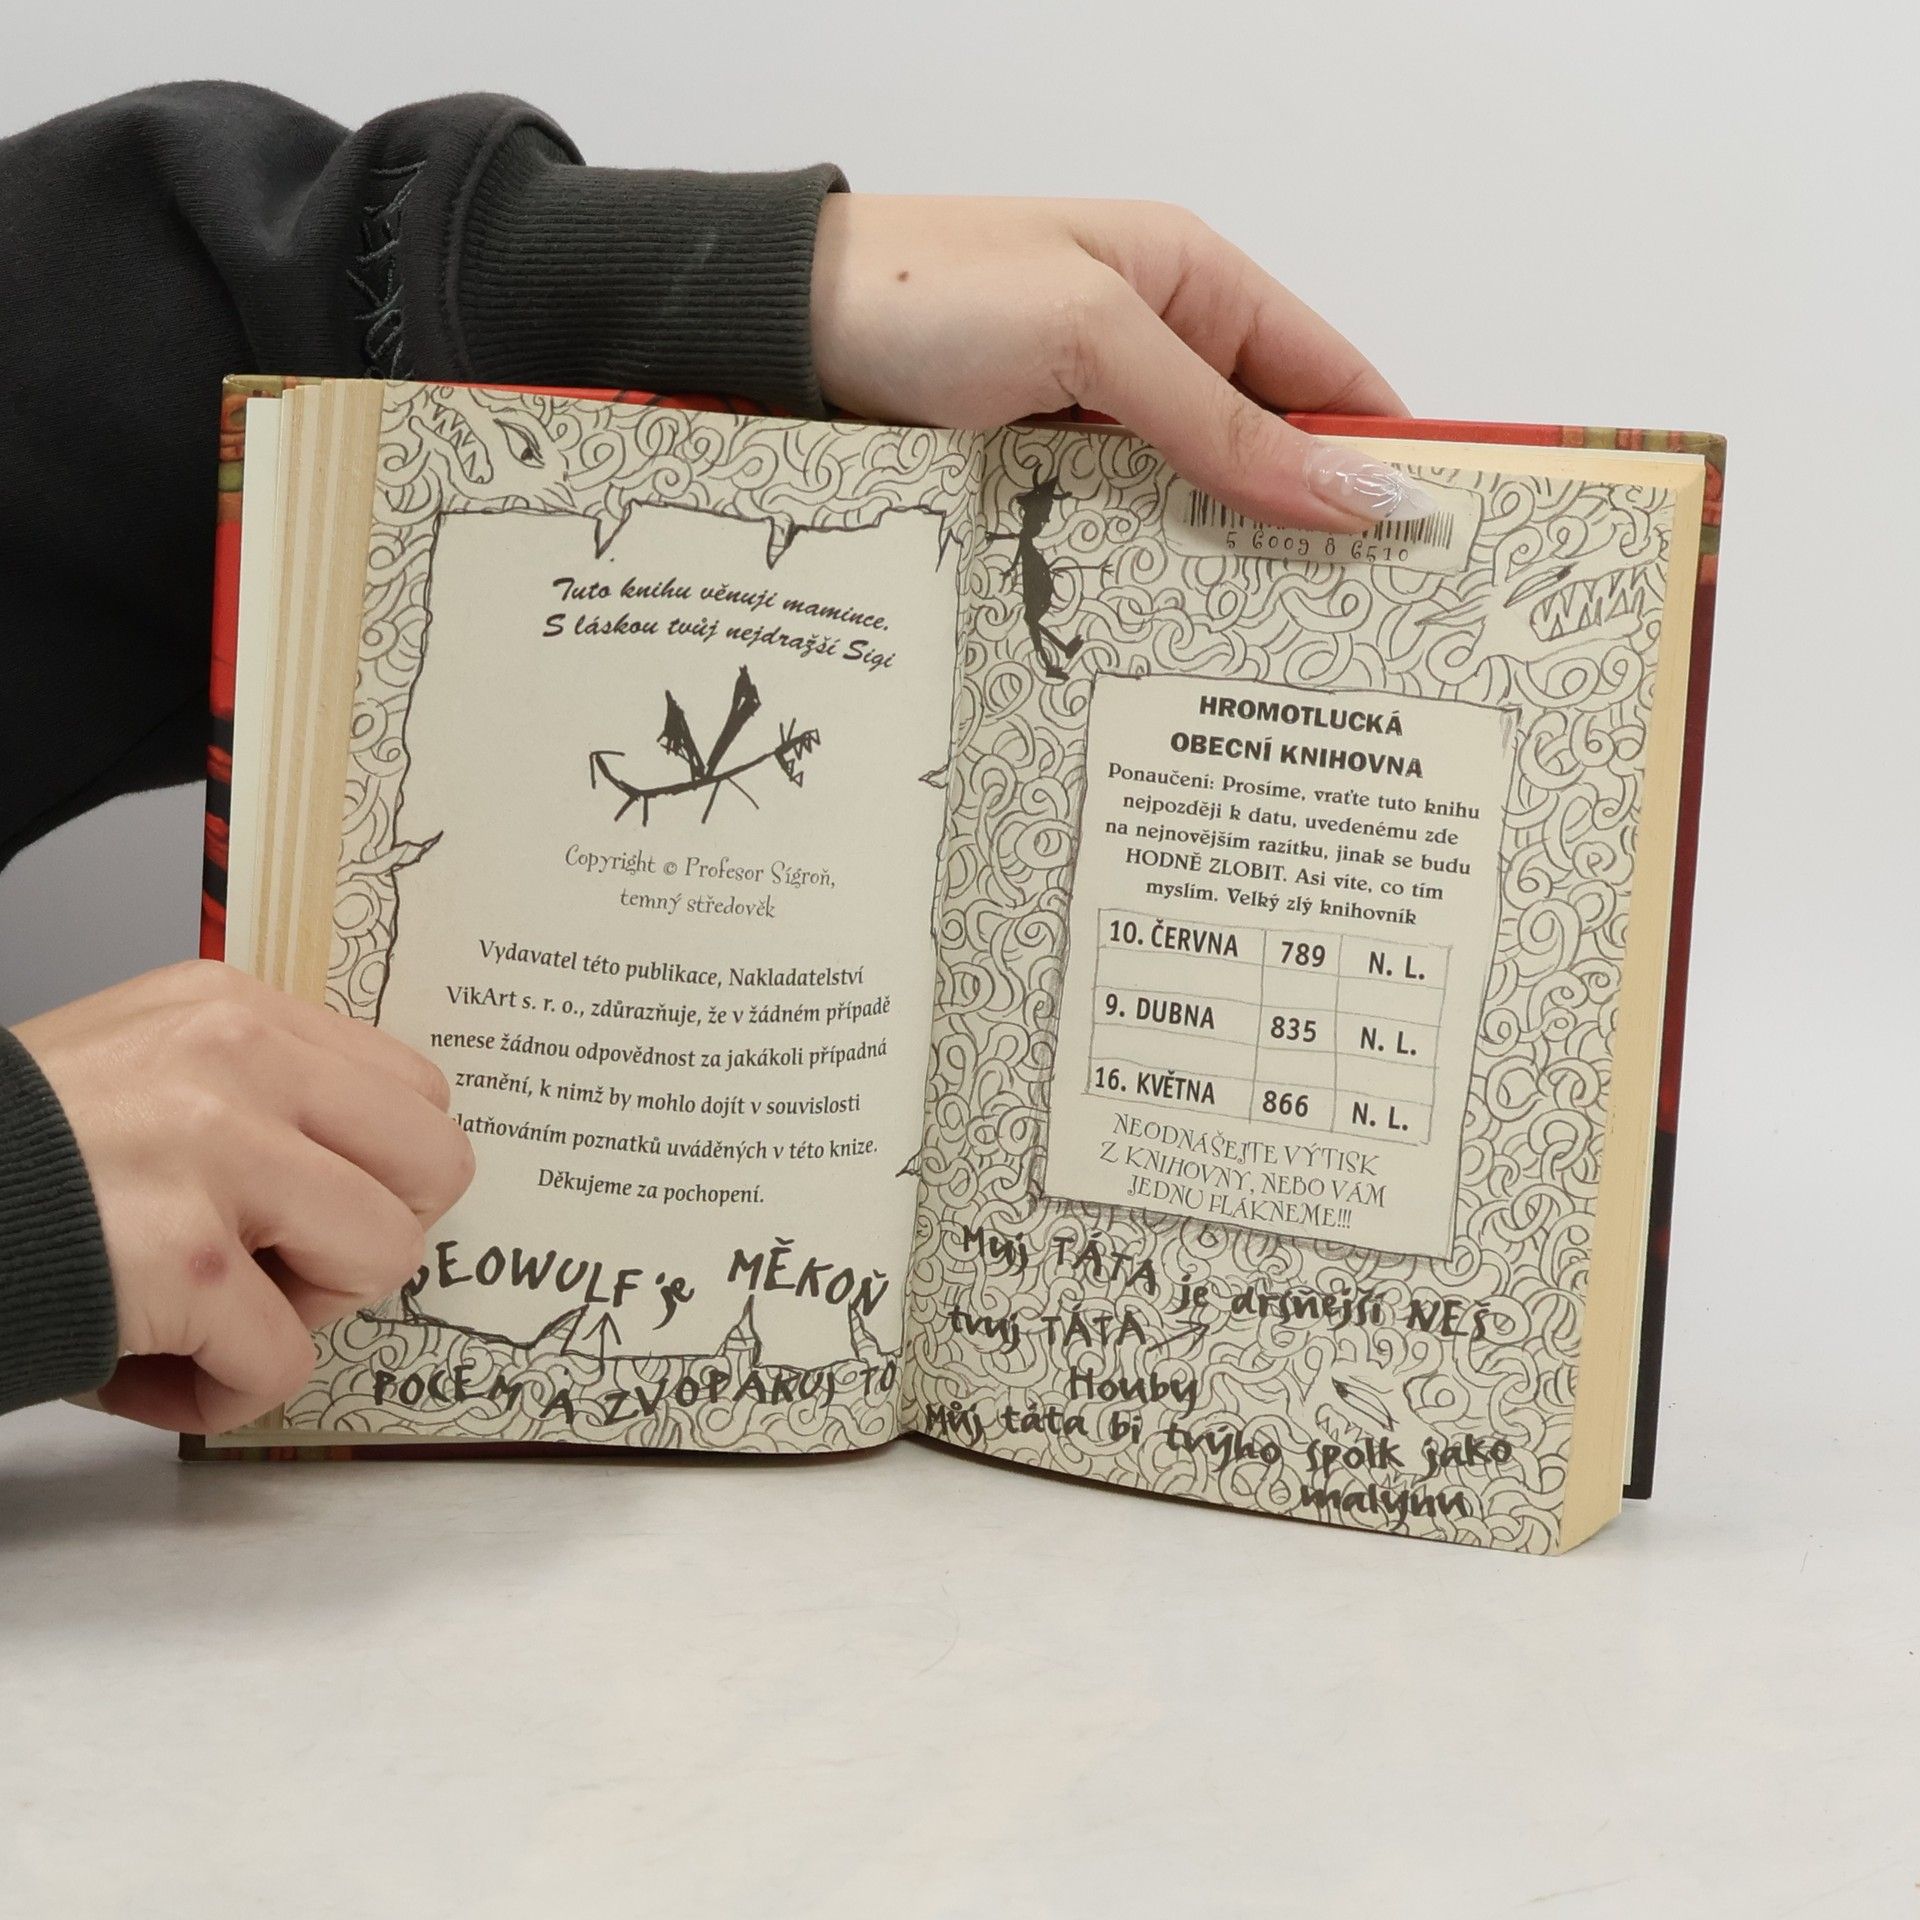 Tuto knihu věnuji mamince.
S láskou tvůj nejdražší Sigi
Copyright © Profesor Sígroň,
temný středověk
Vydavatel této publikace, Nakladatelství
VikArt s. r. o., zdůrazňuje, že v žádném případě
nenese žádnou odpovědnost za jakákoli případná
zranění, k nimž by mohlo dojít v souvislosti
poznatků uváděných v této knize.
Děkujeme za pochopení.
BEOWULF je MĚKOŇ
POCEM A ZVOPAKUJ TO
5 6009 8 6510
HROMOTLUCKÁ
OBECNÍ KNIHOVNA
Ponaučení: Prosíme, vraťte tuto knihu
nejpozději k datu, uvedenému zde
na nejnovějším razítku, jinak se budu
HODNĚ ZLOBIT. Asi víte, co tím
myslím. Velký zlý knihovník
10. ČERVNA 789 N. L.
9. DUBNA 835 N. L.
16. KVĚTNA 866 N. L.
NEODNÁŠEJTE VÝTISK
Z KNIHOVNY, NEBO VÁM
JEDNU FLÁKNEME!!!
Muj TÁTA je drsňejší NEŠ
tvuj TÁTA
Houby
Můj táta bi tvýho spolk jako
malynu